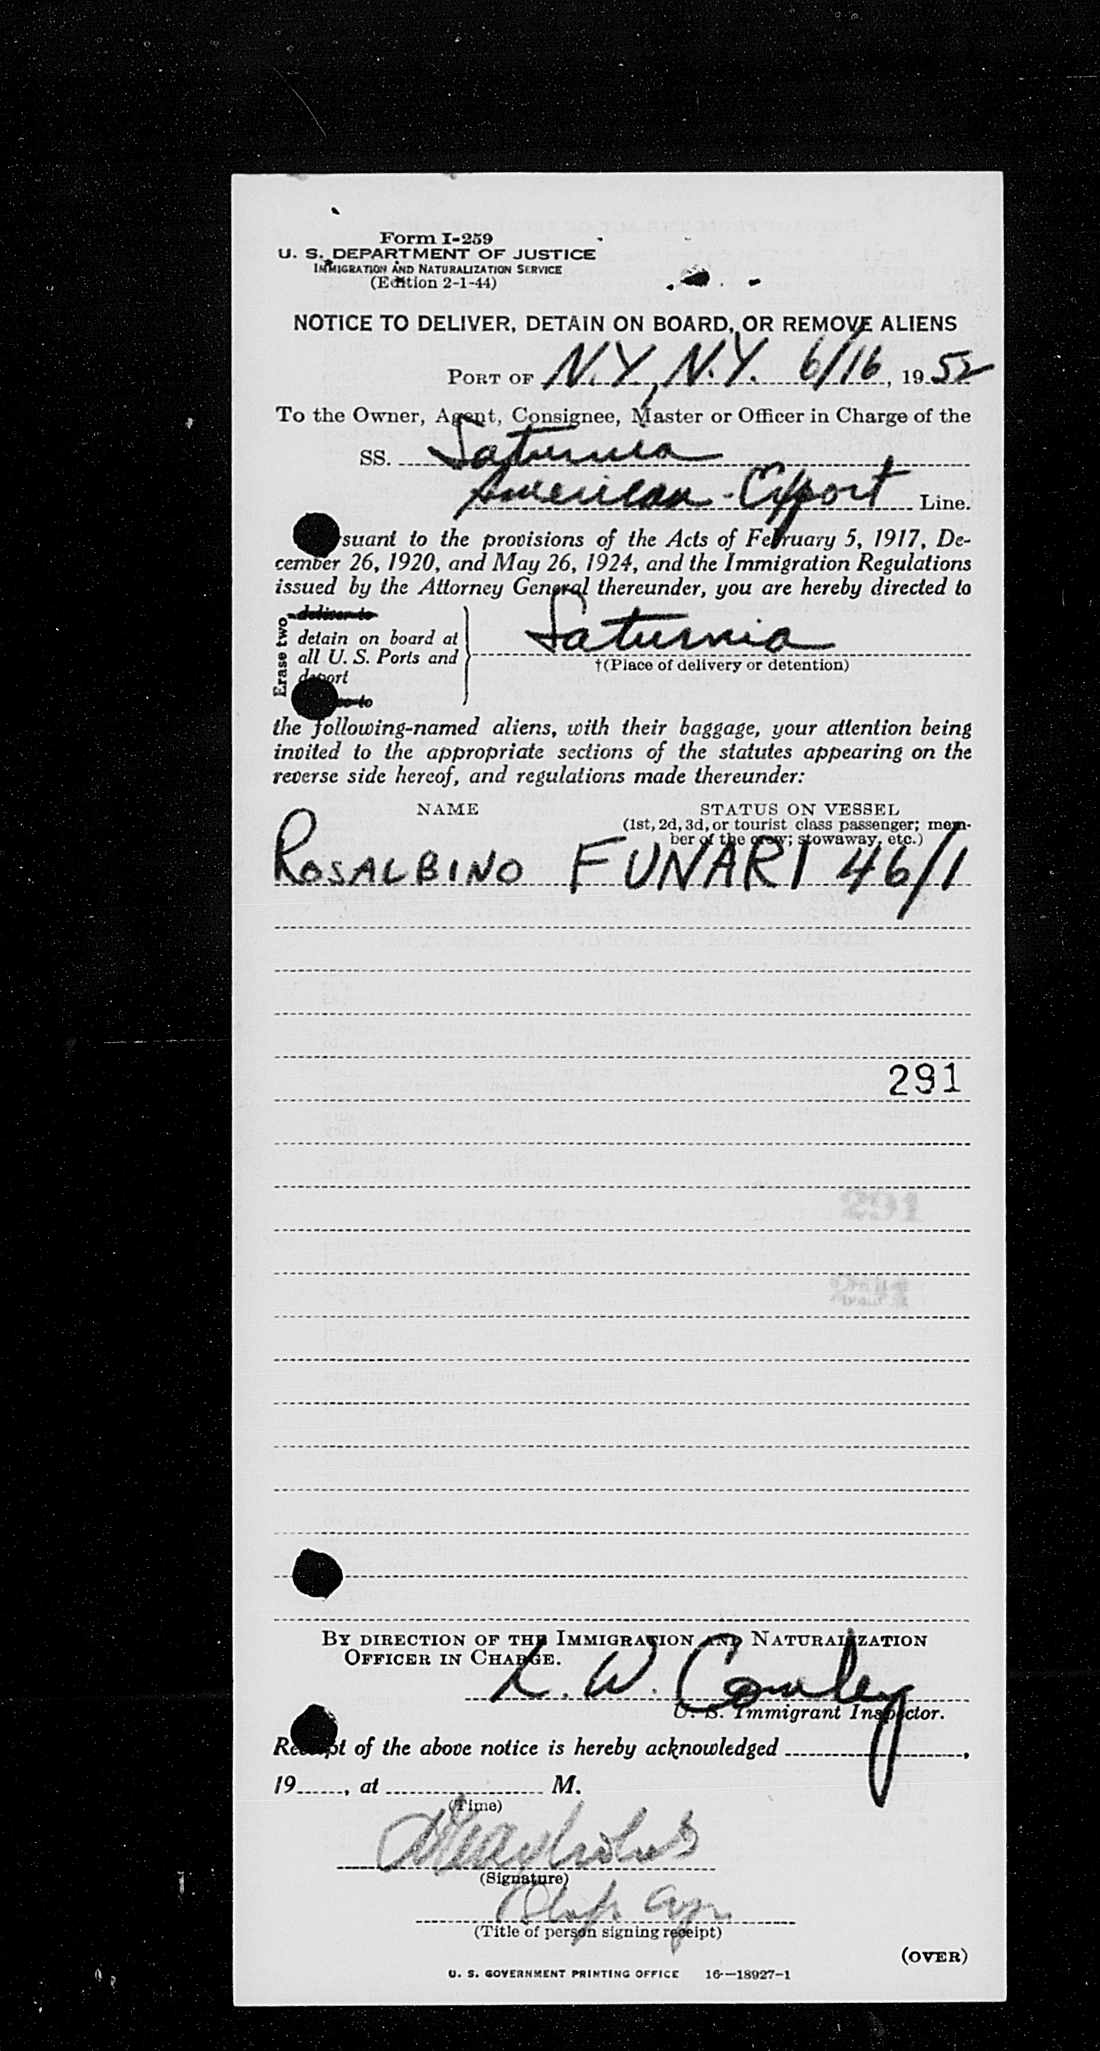 Form I-259
U. S. DEPARTMENT OF JUSTICE
IMMIGRATION AND NATURALIZATION SERVICE
(Edition 2-1-44)
NOTICE TO DELIVER, DETAIN ON BOARD, OR REMOVE ALIENS
PORT OF N.Y., N.Y. 6/16, 1952
To the Owner, Agent, Consignee, Master or Officer in Charge of the
SS. Saturnia
American Export Line.
suant to the provisions of the Acts of February 5, 1917, De-
cember 26, 1920, and May 26, 1924, and the Immigration Regulations
issued by the Attorney General thereunder, you are hereby directed to
Erase two
deliver to
detain on board at
all U. S. Ports and
deport
Saturnia
†(Place of delivery or detention)
the following-named aliens, with their baggage, your attention being
invited to the appropriate sections of the statutes appearing on the
reverse side hereof, and regulations made thereunder:
NAME STATUS ON VESSEL
(1st, 2d, 3d, or tourist class passenger; mem-
ber of the crew; stowaway, etc.)
ROSALBINO FUNARI 46/1
291
291
BY DIRECTION OF THE IMMIGRATION AND NATURALIZATION
OFFICER IN CHARGE.
L. W. Conley
U. S. Immigrant Inspector.
Receipt of the above notice is hereby acknowledged ,
19 , at M.
(Time)
(Signature)
(Title of person signing receipt)
(OVER)
U. S. GOVERNMENT PRINTING OFFICE 16—18927-1